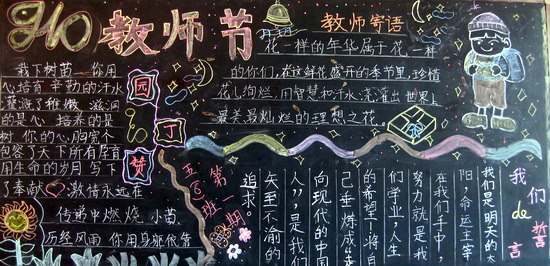 910教师节
教师寄语
花一样的年华属于花一样
的你们,在这鲜花盛开的季节里,珍惜
花儿绚烂,用智慧和汗水浇灌出世界上
最美最灿烂的理想之花。
栽下树苗 你用
心培育 辛勤的汗水
灌溉了稚嫩 滋润
的是心 培养的是
树 你的心胸宽
包容了天下所有
用生命的岁月 写下
了奉献 激情永远在
传递中燃烧 小苗
历经风雨 你用身躯依靠
园
丁
赞
第一期
五(8)班
我们de誓言
我们是明天的太
阳,命运主宰
在我们手中,
努力就是我
们学业,人生
的希望!将自
己垂炼成走
向现代的中国
人,是我们
矢至不渝的
追求。